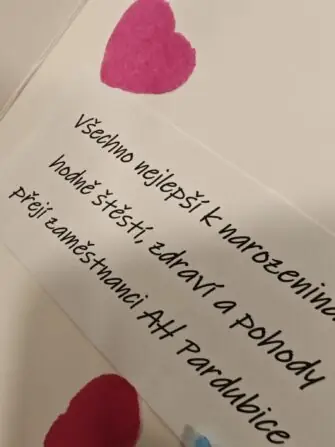 Všechno nejlepší k narozenin
hodně štěstí, zdraví a pohody
přejí zaměstnanci AH Pardubice